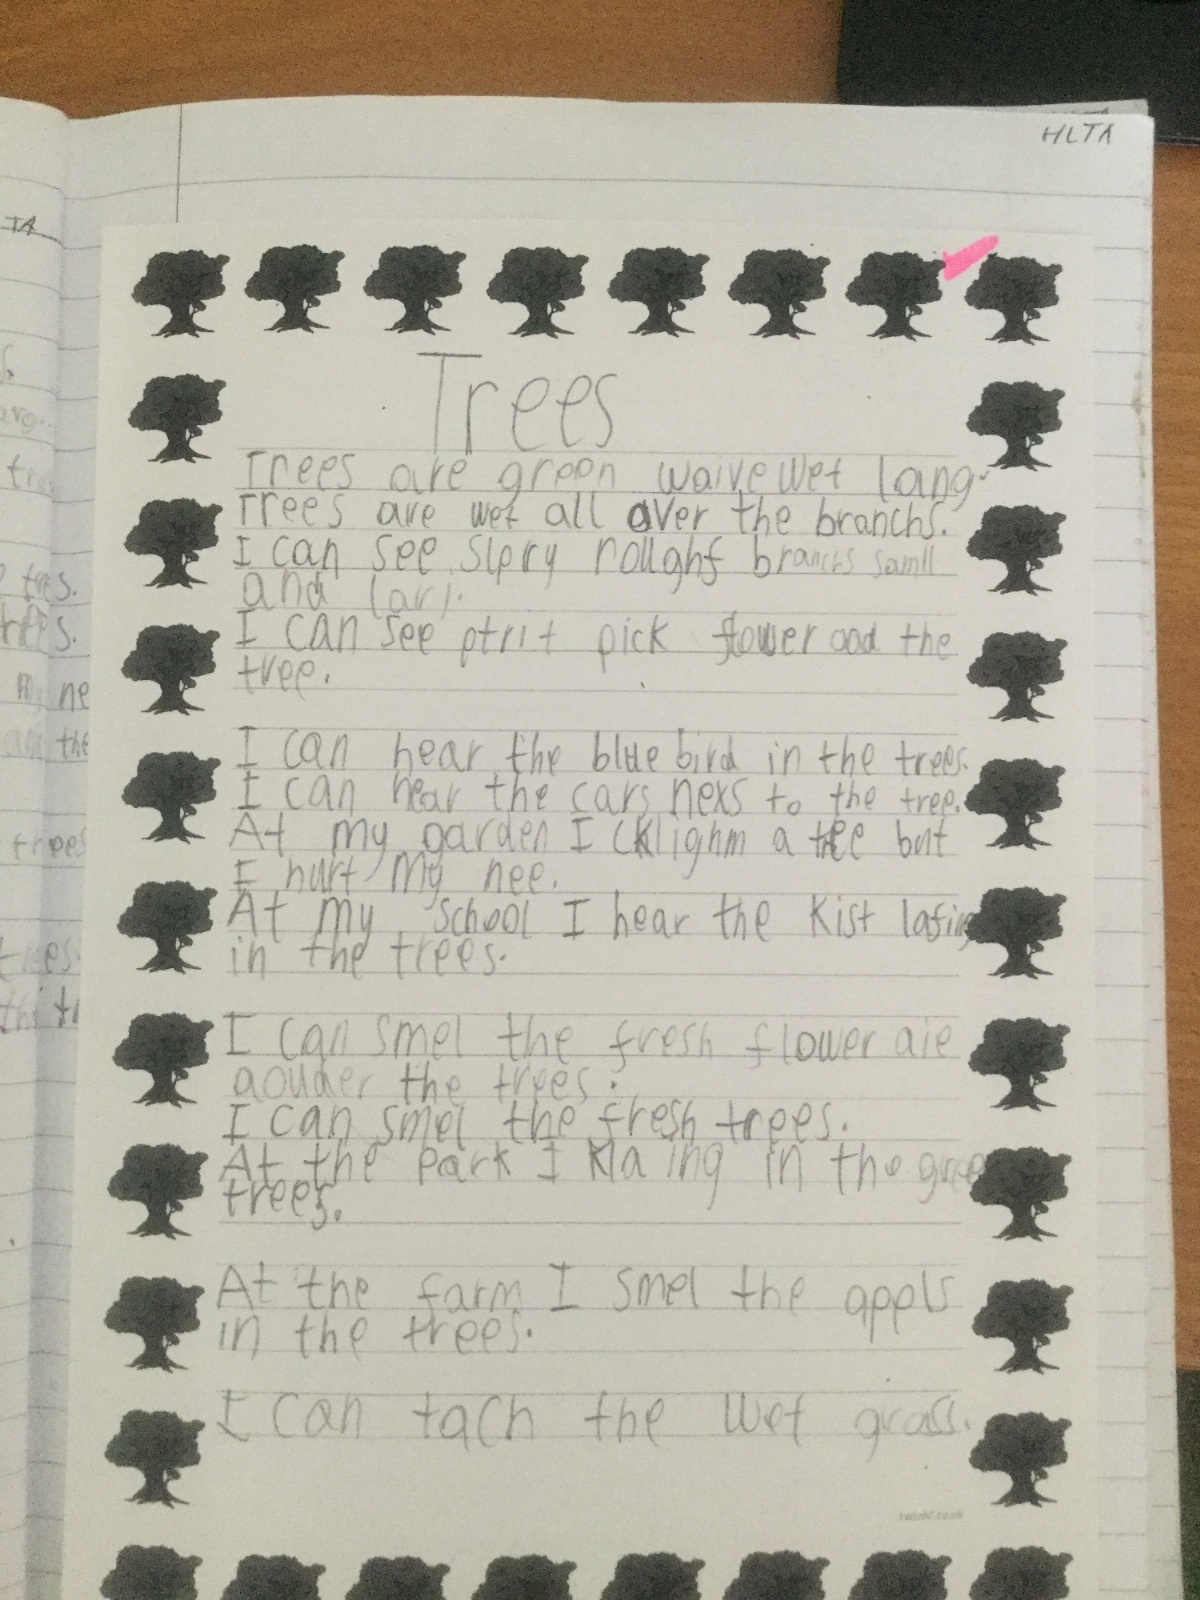 HLTA
Trees
Trees are green waive wet lang.
Trees are wet all over the branchs.
I can see slpry roughf branchs samll
and
I can see ptrit pick flower and the
tree.
I can hear the blue bird in the trees.
I can hear the cars nexs to the tree.
At my garden I cklighm a tree but
I hurt my nee.
At my school I hear the kist lafing
in the trees.
I can smel the fresh flower aie
aouder the trees.
I can smel the fresh trees.
At the park I klaing in the gree
trees.
At the farm I smel the appls
in the trees.
I can tach the wet grass.
twinkl.co.uk